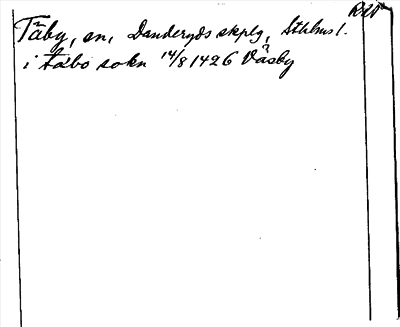 Täby, sn, Danderyds skplg, Sthlms l.
i täbo sokn 14/8 1426 Väsby